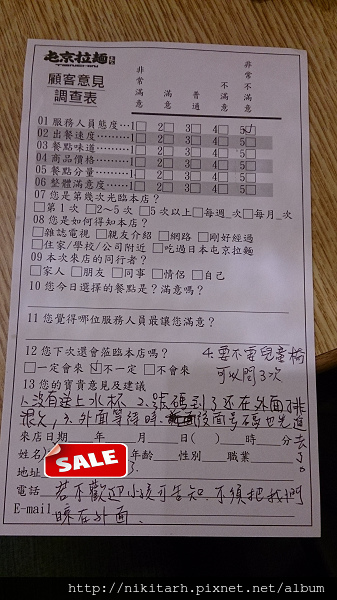 屯京拉麵
顧客意見
調查表
非常滿意 滿意 普通 不滿意 非常不滿意
01 服務人員態度…1□ 2□ 3□ 4□ 5☑
02 出餐速度………1□ 2□ 3□ 4□ 5□
03 餐點味道………1□ 2□ 3□ 4□ 5□
04 商品價格………1□ 2□ 3□ 4□ 5□
05 餐點分量………1□ 2□ 3□ 4□ 5□
06 整體滿意度……1□ 2□ 3□ 4□ 5□
07 您是第幾次光臨本店?
□第1次□2～5次□5次以上□每週_次□每月_次
08 您是如何得知本店?
□雜誌電視 □親友介紹 □網路 □剛好經過
□住家/學校/公司附近 □吃過日本屯京拉麵
09 本次來店的同行者?
□家人 □朋友 □同事 □情侶 □自己
10 您今日選擇的餐點是?滿意嗎?
11 您覺得哪位服務人員最讓您滿意?
12 您下次還會蒞臨本店嗎?
□一定會來 ☑不一定 □不會來
4.要不要兒童椅
可以問3次
13 您的寶貴意見及建議
1.沒有送上水杯 2.號碼到了還在外面排
很久,3.外面等待時,後面号碼也先進
去了。
來店日期 年 月 日( ) 時 分
姓名 年齡 性別 職業
SALE
地址
電話 若不歡迎小孩可告知.不須把我們
E-mail 晾在外面.
http://nikitarh.pixnet.net/album